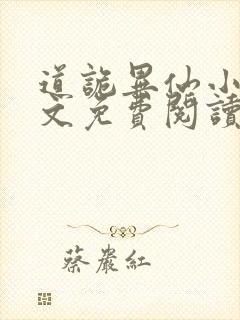 道詭異仙小
文免費閱讀
蔡嚴紅